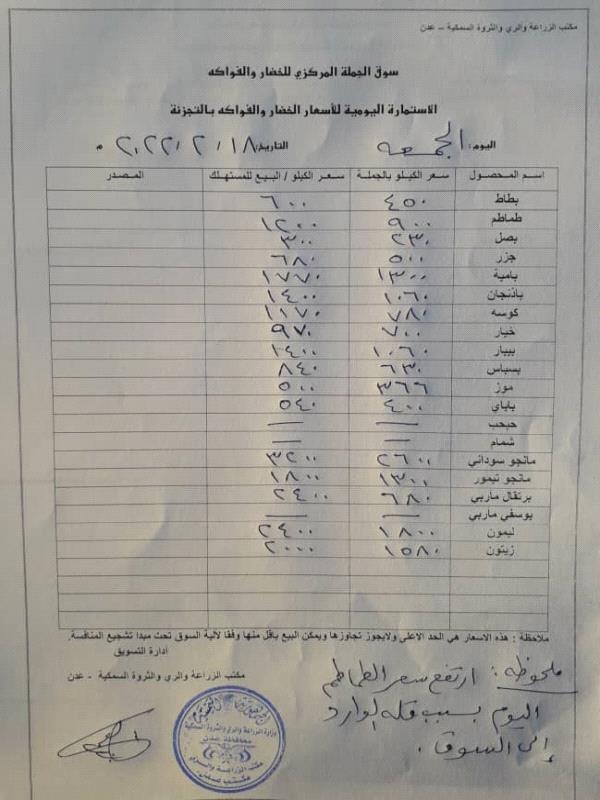 مكتب الزراعة والري والثروة السمكية - عدن
سوق الجملة المركزي للخضار والفواكه
الاستمارة اليومية للأسعار الخضار والفواكه بالتجزئة
اليوم: الجمعه التاريخ: ١٨/٢/٢٠٢٢ م
اسم المحصول سعر الكيلو بالجملة سعر الكيلو / البيع للمستهلك المصدر
بطاط ٤٥٠ ٦٠٠
طماطم ٩٠٠ ١٢٠٠
بصل ٢٣٠ ٣٠٠
جزر ٥٠٠ ٦٨٠
بامية ١٣٠٠ ١٧٧٠
باذنجان ١٠٦٠ ١٤٠٠
كوسه ٧٨٠ ١١٧٠
خيار ٧٠٠ ٩٧٠
بيبار ١٠٦٠ ١٤٠٠
بسباس ٦٣٠ ٨٤٠
موز ٣٦٦ ٥٠٠
باباي ٤٠٠ ٥٤٠
حبحب — —
شمام — —
مانجو سوداني ٢٦٠٠ ٣٢٠٠
مانجو تيمور ١٣٠٠ ١٨٠٠
برتقال ماربي ٦٨٠ ٢٤٠٠
يوسفي ماربي — —
ليمون ١٨٠٠ ٢٤٠٠
زيتون ١٥٨٠ ٢٠٠٠
ملاحظة : هذه الاسعار هي الحد الاعلى ولايجوز تجاوزها ويمكن البيع باقل منها وفقا لآلية السوق تحت مبدا تشجيع المنافسة.
أدارة التسويق
مكتب الزراعة والري والثروة السمكية - عدن
ملحوظه : ارتفع سعر الطماطم
اليوم بسبب قله الوارد
إلى السوق .
وزارة الزراعة والري والثروة السمكية
محافظة عدن
مكتب الزراعة والري